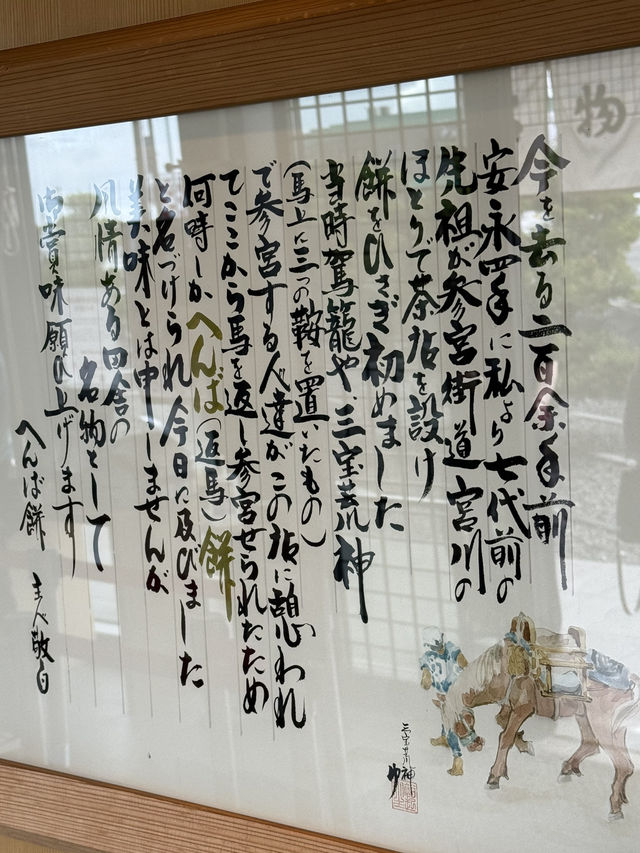 今を去る二百余年前
安永四年に私より七代前の
先祖が参宮街道宮川の
ほとりで茶店を設け
餅をひさぎ初めました
当時駕籠や、三宝荒神
(馬上に三つの鞍を置いたもの)
で参宮する人達がこの店に憩われ
てここから馬を返し参宮せられたため
何時しかへんば(返馬)餅
と名づけられ今日に及びました
美味とは申しませんが
風情ある田舎の
名物として
御賞味願い上げます
へんば餅 主人敬白
三宝荒神
物